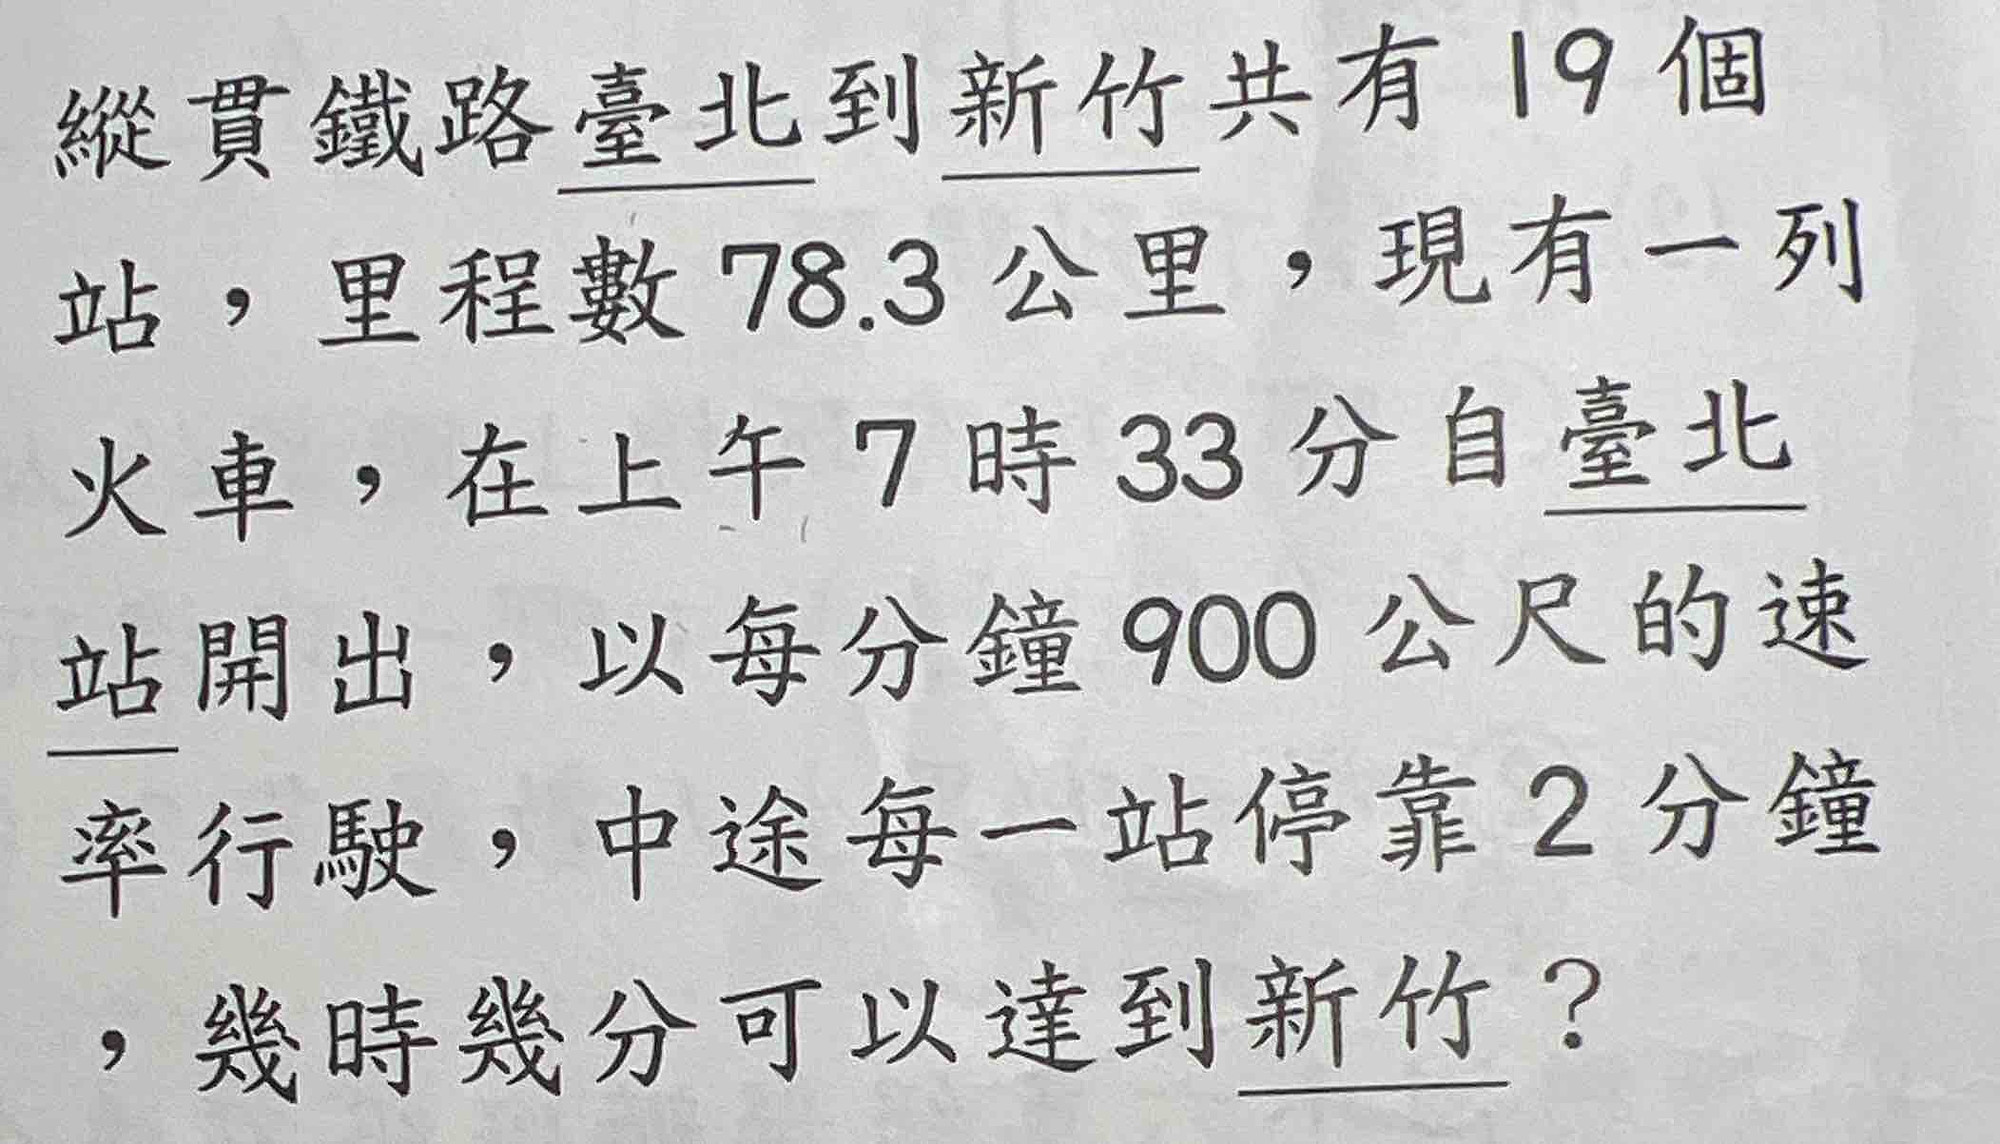 縱貫鐵路臺北到新竹共有19個
站，里程數78.3公里，現有一列
火車，在上午7時33分自臺北
站開出，以每分鐘900公尺的速
率行駛，中途每一站停靠2分鐘
，幾時幾分可以達到新竹？